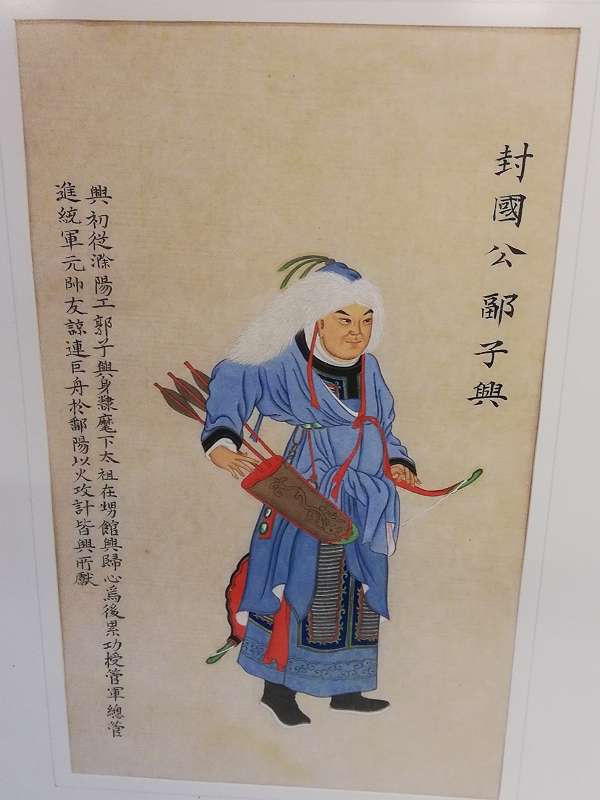 封國公子興
興初從滁陽工郭子興身隸麾下太祖在甥館興歸心焉後累功授管軍總管
進統軍元帥友諒連巨舟於鄱陽以火攻計皆興所獻